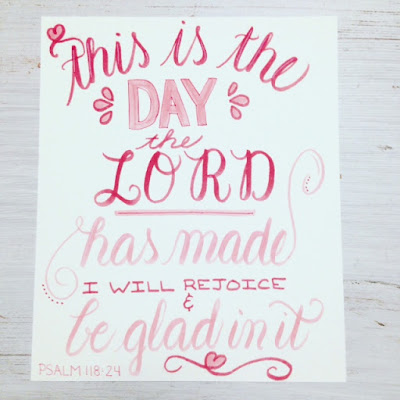 this is the
DAY
the
LORD
has made
I WILL REJOICE
&
be glad in it
PSALM 118:24